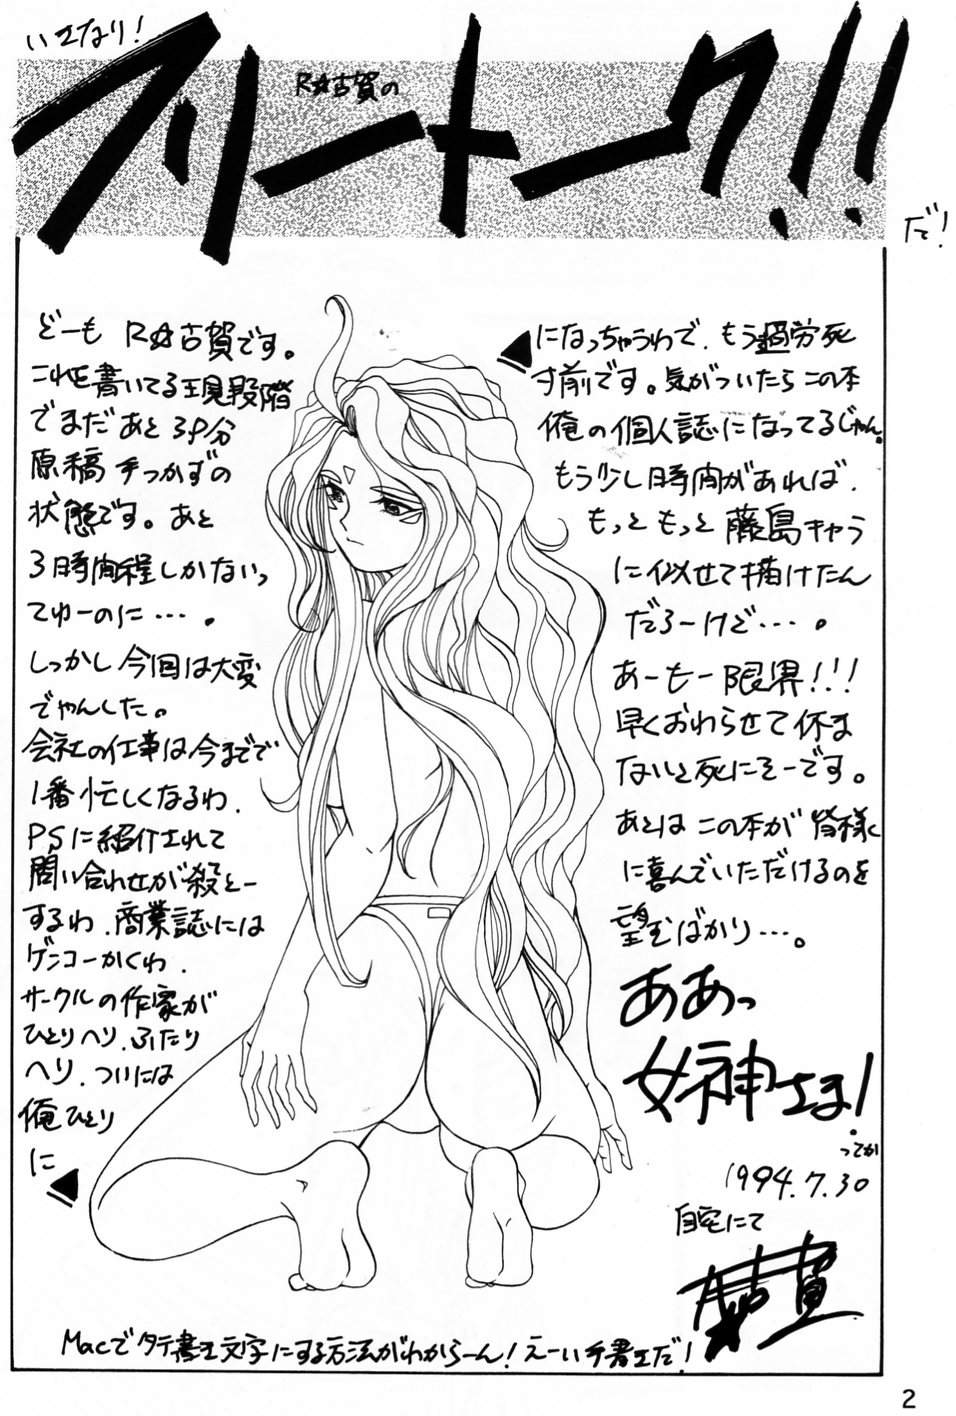 いきなり!
R☆古賀の
フリートーク!!
だ!
どーも R☆古賀です。
これを書いてる現段階
でまだあと3P分
原稿手つかずの
状態です。あと
3時間程しかないっ
てゆーのに…。
しっかし今回は大変
でやんした。
会社の仕事は今までで
1番忙しくなるわ、
PSに紹介されて
問い合わせが殺とー
するわ、商業誌には
ゲンコーかくわ、
サークルの作家が
ひとりヘリ、ふたり
ヘリ、ついには
俺ひとり
に
になっちゃうわで、もう過労死
寸前です。気がついたらこの本
俺の個人誌になってるじゃん。
もう少し時間があれば、
もっともっと藤島キャラ
に似せて描けたん
だろーけど…。
あーもー限界!!!
早くおわらせて休ま
ないと死にそーです。
あとはこの本が皆様に
に喜んでいただけるのを
望むばかり…。
ああっ
女神さま!
ってか
1994.7.30
自宅にて
R☆古賀
Macでタテ書き文字にする方法がわからーん!えーい手書きだ!
2